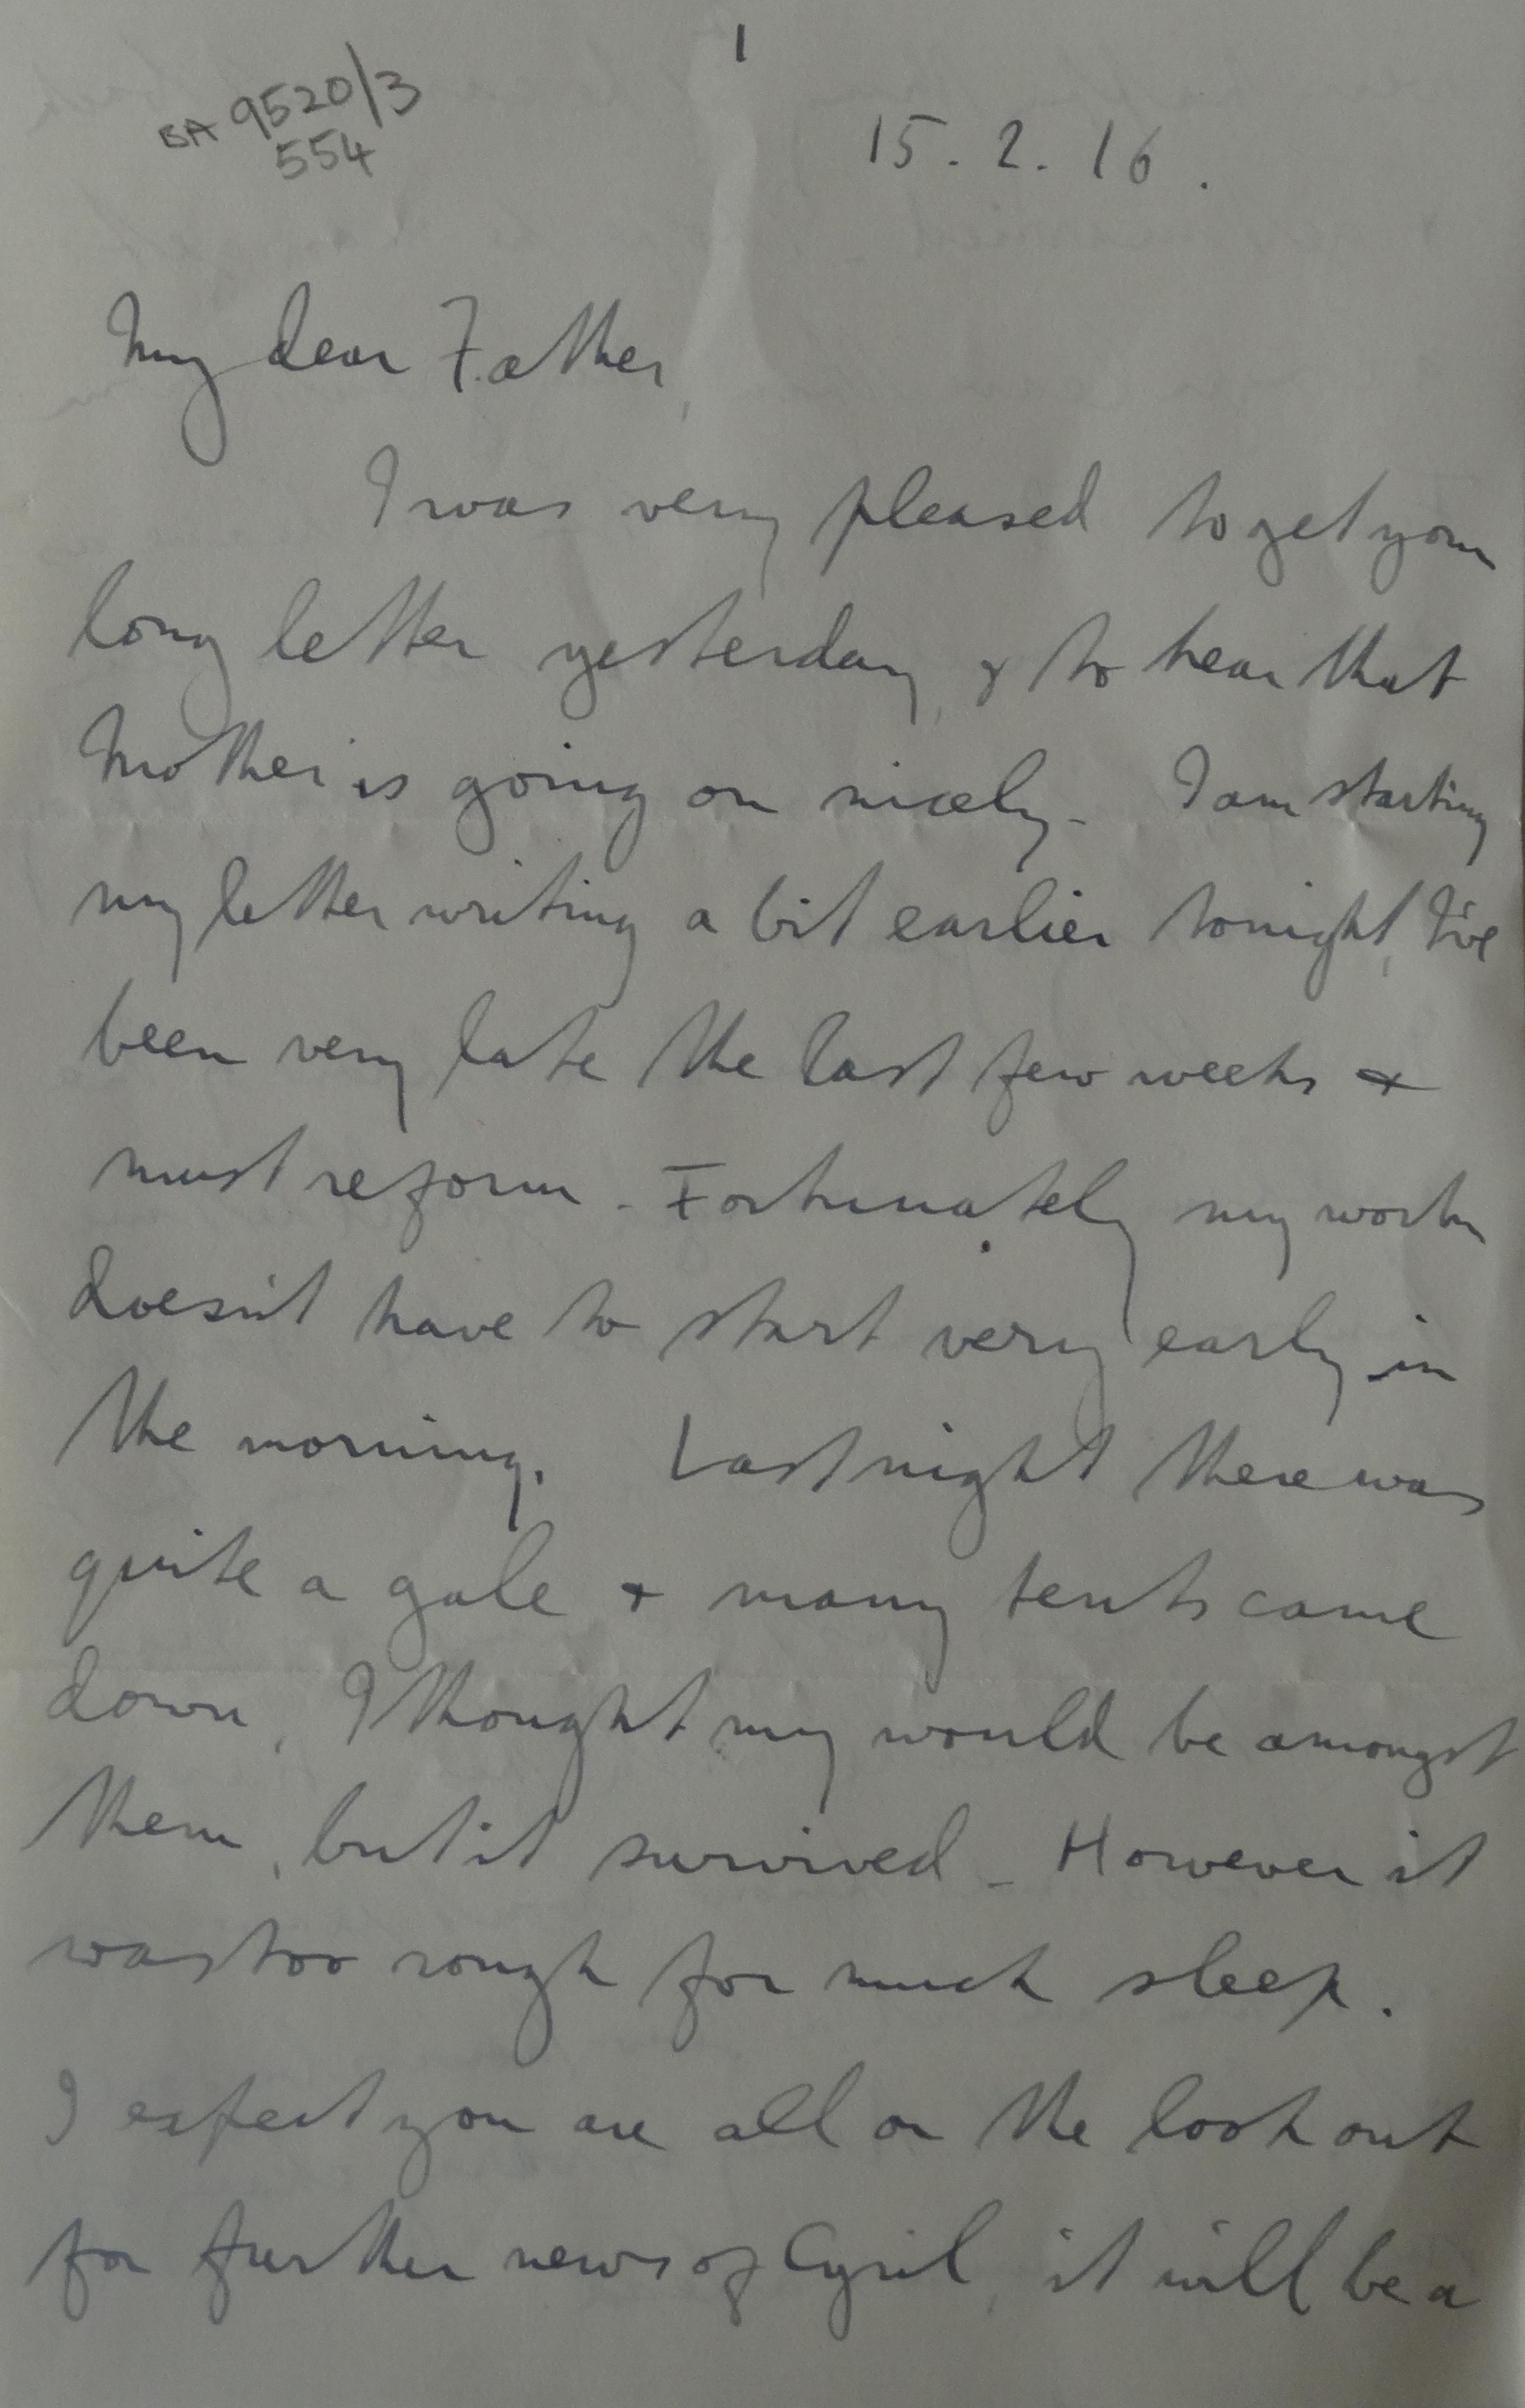 1
BA 9520/3
554
15.2.16.
My dear Father,
I was very pleased to get your
long letter yesterday, & to hear that
Mother is going on nicely. I am starting
my letter writing a bit earlier tonight, I've
been very late the last few weeks &
must reform. Fortunately my work
doesn't have to start very early in
the morning. Last night there was
quite a gale & many tents came
down, I thought my would be amongst
them, but it survived. However it
was too rough for much sleep.
I expect you are all on the look out
for further news of Cyril, it will be a